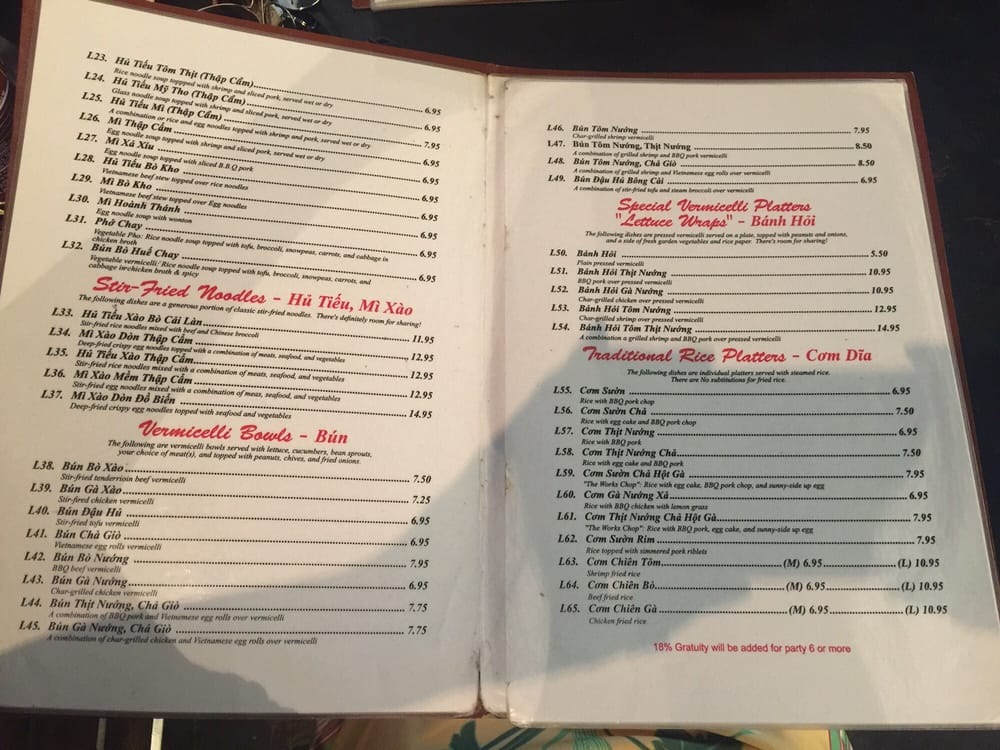 L23. Hủ Tiếu Tôm Thịt (Thập Cẩm)........ 6.95
Rice noodle soup toppped with shrimp and sliced pork, served wet or dry
L24. Hủ Tiếu Mỹ Tho (Thập Cẩm)........ 6.95
Glass noodle soup topped with shrimp and sliced pork, served wet or dry
L25. Hủ Tiếu Mì (Thập Cẩm)........ 7.95
A combination or rice and egg noodles topped with shrimp and pork, served wet or dry
L26. Mì Thập Cẩm........ 6.95
Egg noodle soup topped with shrimp and sliced pork, served wet or dry
L27. Mì Xá Xíu........ 6.95
Egg noodle soup topped with sliced B.B.Q pork
L28. Hủ Tiếu Bò Kho........ 6.95
Vietnamese beef stew topped over rice noodles
L29. Mì Bò Kho........ 6.95
Vietnamese beef stew topped over Egg noodles
L30. Mì Hoành Thánh........ 6.95
Egg noodle soup with wonton
L31. Phở Chay........ 6.95
Vegetable Pho: Rice noodle soup topped with tofu, broccoli, snowpeas, carrots, and cabbage in
chicken broth
L32. Bún Bò Huế Chay........ 6.95
Vegetable vermicelli: Rice noodle soup topped with tofo, broccoli, snowpeas, carrots, and
cabbage in chicken broth & spicy
Stir-Fried Noodles - Hủ Tiếu, Mì Xào
The following dishes are a generous portion of classic stir-fried noodles. There's definitely room for sharing!
L33. Hủ Tiếu Xào Bò Cải Làn........ 11.95
Stir-fied rice noodles mixed with beef and Chinese broccoli
L34. Mì Xào Dòn Thập Cẩm........ 12.95
Deep-fried crispy egg noodles topped with a combination of meats, seafood, and vegetables
L35. Hủ Tiếu Xào Thập Cẩm........ 12.95
Stir-fried rice noodles mixed with a combination of meats, seafood, and vegetables
L36. Mì Xào Mềm Thập Cẩm........ 12.95
Stir-fried egg noodles mixed with a combination of meas, seafood, and vegetables
L37. Mì Xào Dòn Đồ Biển........ 14.95
Deep-fried crispy egg noodles topped with seafood and vegetables
Vermicelli Bowls - Bún
The following are vermicelli bowls served with lettuce, cucumbers, bean sprouts,
your choice of meat(s), and topped with peanuts, chives, and fried onions.
L38. Bún Bò Xào........ 7.50
Stir-fried tenderrioin beef vermicelli
L39. Bún Gà Xào........ 7.25
Stir-fired chicken vermicelli
L40. Bún Đậu Hủ........ 6.95
Stir-fried tofu vermicelli
L41. Bún Chả Giò........ 6.95
Vietnamese egg rolls vermicelli
L42. Bún Bò Nướng........ 7.95
BBQ beef vermicelli
L43. Bún Gà Nướng........ 6.95
Char-grilled chicken vermicelli
L44. Bún Thịt Nướng, Chả Giò........ 7.75
A combination of BBQ pork and Vietnemese egg rolls over vermicelli
L45. Bún Gà Nướng, Chả Giò........ 7.75
A combination of char-grilled chicken and Vietnamese egg rolls over vermicelli
L46. Bún Tôm Nướng........ 7.95
Char-grilled shrimp vermicelli
L47. Bún Tôm Nướng, Thịt Nướng........ 8.50
A combination of grilled shrimp and BBQ pork vermicelli
L48. Bún Tôm Nướng, Chả Giò........ 8.50
A combination of grilled shrimp and Vietnamese egg rolls over vermicelli
L49. Bún Đậu Hủ Bông Cải........ 6.95
A combination of stir-fried tofu and steam broccoli over vermicelli
Special Vermicelli Platters
"Lettuce Wraps" - Bánh Hỏi
The following dishes are pressed vermicelli served on a plate, topped with peanuts and onions,
and a side of fresh garden vegetables and rice paper. There's room for sharing!
L50. Bánh Hỏi........ 5.50
Plain pressed vermicelli
L51. Bánh Hỏi Thịt Nướng........ 10.95
BBQ pork over pressed vermicelli
L52. Bánh Hỏi Gà Nướng........ 10.95
Char-grilled chicken over pressed vermicelli
L53. Bánh Hỏi Tôm Nướng........ 12.95
Char-grilled shrimp over pressed vermicelli
L54. Bánh Hỏi Tôm Thịt Nướng........ 14.95
A combination a grilled shrimp and BBQ pork over pressed vermicelli
Traditional Rice Platters - Cơm Dĩa
The following dishes are individual platters served with steamed rice.
There are No substitutions for fried rice.
L55. Cơm Sườn........ 6.95
Rice with BBQ pork chop
L56. Cơm Sườn Chả........ 7.50
Rice with egg cake and BBQ pork chop
L57. Cơm Thịt Nướng........ 6.95
Rice with BBQ pork
L58. Cơm Thịt Nướng Chả........ 7.50
Rice with egg cake and BBQ pork
L59. Cơm Sườn Chả Hột Gà........ 7.95
"The Works Chop": Rice with egg cake, BBQ pork chop, and sunny-side up egg
L60. Cơm Gà Nướng Xả........ 6.95
Rice with BBQ chicken with lemon grass
L61. Cơm Thịt Nướng Chả Hột Gà........ 7.95
"The Works Chop": Rice with BBQ pork, egg cake, and sunny-side up egg
L62. Cơm Sườn Rim........ 7.95
Rice topped with simmered pork riblets
L63. Cơm Chiên Tôm........(M) 6.95........(L) 10.95
Shrimp fried rice
L64. Cơm Chiên Bò........(M) 6.95........(L) 10.95
Beef fried rice
L65. Cơm Chiên Gà........(M) 6.95........(L) 10.95
Chicken fried rice
18% Gratuity will be added for party 6 or more